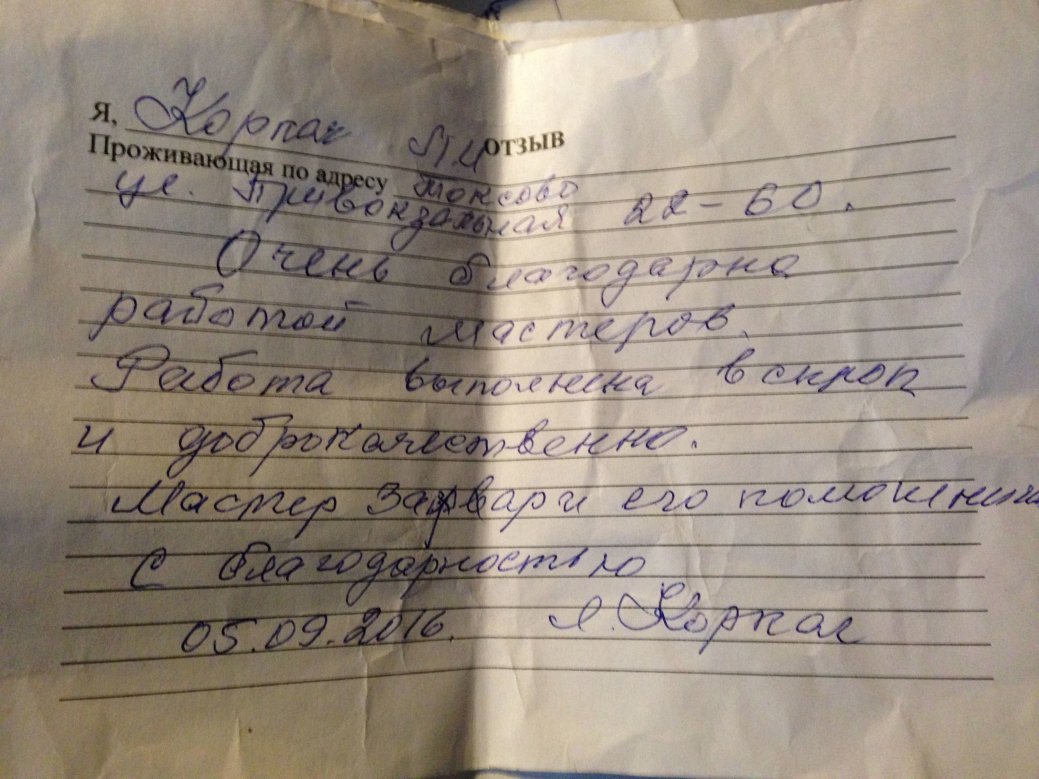 ОТЗЫВ
Я, Корпач
Проживающая по адресу Токсово
ул. Привокзальная 22-60.
Очень благодарна
работой мастеров.
Работа выполнена в срок
и доброкачественно.
Мастер и его помощник
С благодарностью
05.09.2016. Корпач